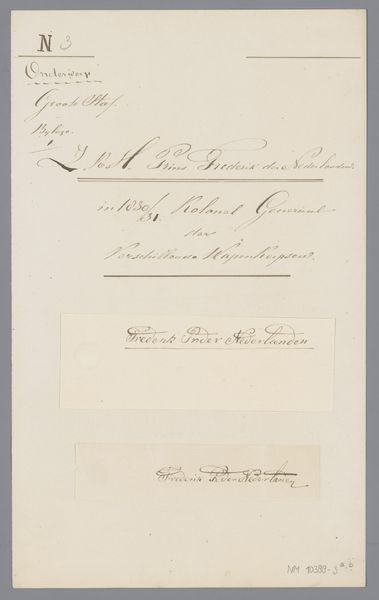 N 3
Onderwerp
Groote Staf.
Bylage
1
Z. K. H. Prins Frederik der Nederlanden
in 1830/31. Kolonel Generaal
der
Verschillende Wapenkorpsen.
Frederik Pr der Nederlanden
Frederik Pr der Nederlanden
NM 10388-3 a, b